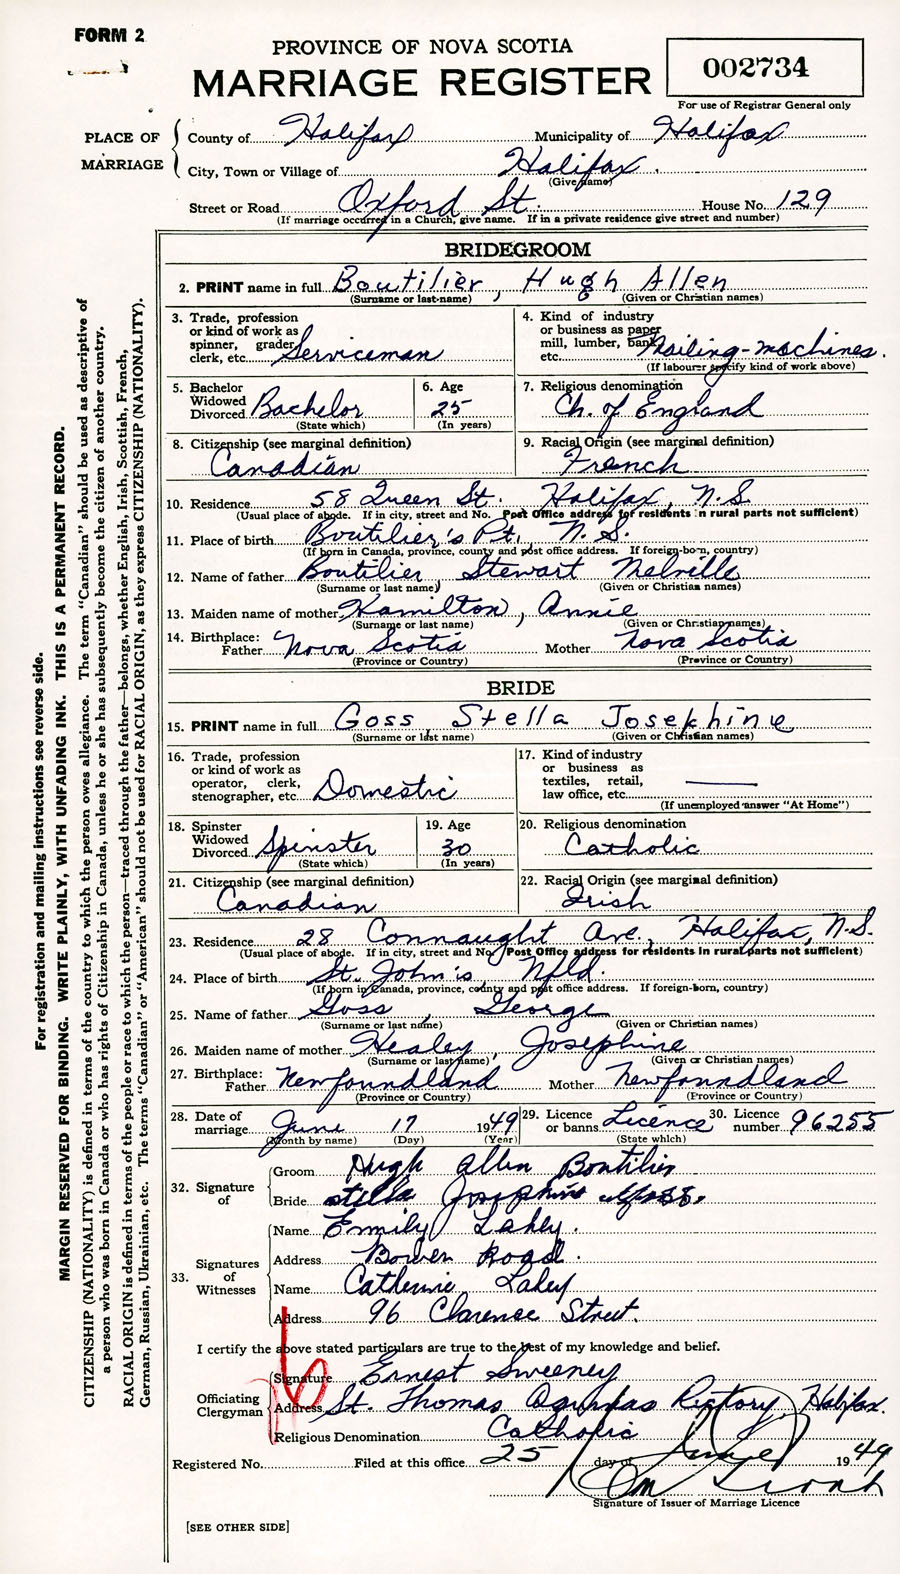 FORM 2
PROVINCE OF NOVA SCOTIA
MARRIAGE REGISTER
002734
For use of Registrar General only
PLACE OF MARRIAGE
County of Halifax Municipality of Halifax
City, Town or Village of Halifax
(Give name)
Street or Road Oxford St. House No. 129
(If marriage occurred in a Church, give name. If in a private residence give street and number)
BRIDEGROOM
2. PRINT name in full Boutilier, Hugh Allen
(Surname or last-name) (Given or Christian names)
3. Trade, profession or kind of work as spinner, grader, clerk, etc. Serviceman
4. Kind of industry or business as paper mill, lumber, bank, etc. Mailing-machines.
(If labourer specify kind of work above)
5. Bachelor Widowed Divorced Bachelor
(State which)
6. Age 25
(In years)
7. Religious denomination Ch. of England
8. Citizenship (see marginal definition) Canadian
9. Racial Origin (see marginal definition) French
10. Residence 58 Queen St. Halifax, N.S.
(Usual place of abode. If in city, street and No. Post Office address for residents in rural parts not sufficient)
11. Place of birth Boutilier's Pt. N.S.
(If born in Canada, province, county and post office address. If foreign-born, country)
12. Name of father Boutilier Stewart Melville
(Surname or last name) (Given or Christian names)
13. Maiden name of mother Hamilton, Annie
(Surname or last name) (Given or Christian names)
14. Birthplace: Father Nova Scotia Mother Nova Scotia
(Province or Country) (Province or Country)
BRIDE
15. PRINT name in full Goss, Stella Josephine
(Surname or last name) (Given or Christian names)
16. Trade, profession or kind of work as operator, clerk, stenographer, etc. Domestic
17. Kind of industry or business as textiles, retail, law office, etc. ———
(If unemployed answer "At Home")
18. Spinster Widowed Divorced Spinster
(State which)
19. Age 30
(In years)
20. Religious denomination Catholic
21. Citizenship (see marginal definition) Canadian
22. Racial Origin (see marginal definition) Irish
23. Residence 28 Connaught Ave., Halifax, N.S.
(Usual place of abode. If in city, street and No. Post Office address for residents in rural parts not sufficient)
24. Place of birth St. John's Nfld.
(If born in Canada, province, county and post office address. If foreign-born, country)
25. Name of father Goss, George
(Surname or last name) (Given or Christian names)
26. Maiden name of mother Healey, Josephine
(Surname or last name) (Given or Christian names)
27. Birthplace: Father Newfoundland Mother Newfoundland
(Province or Country) (Province or Country)
28. Date of marriage June 17 1949
(Month by name) (Day) (Year)
29. Licence or banns Licence
(State which)
30. Licence number 96255
32. Signature of
Groom Hugh Allen Boutilier
Bride Stella Josephine Goss.
33. Signatures of Witnesses
Name Emily Lahey.
Address Bowen Road.
Name Catherine Lahey
Address 96 Clarence Street.
I certify the above stated particulars are true to the best of my knowledge and belief.
Officiating Clergyman
Signature Ernest Sweeney
Address St. Thomas Aquinas Rectory, Halifax.
Religious Denomination Catholic
Registered No. Filed at this office 25 day of June 1949
Signature of Issuer of Marriage Licence
[SEE OTHER SIDE]
For registration and mailing instructions see reverse side.
MARGIN RESERVED FOR BINDING. WRITE PLAINLY, WITH UNFADING INK. THIS IS A PERMANENT RECORD.
CITIZENSHIP (NATIONALITY) is defined in terms of the country to which the person owes allegiance. The term "Canadian" should be used as descriptive of
a person who was born in Canada or who has rights of Citizenship in Canada, unless he or she has subsequently become the citizen of another country.
RACIAL ORIGIN is defined in terms of the people or race to which the person—traced through the father—belongs, whether English, Irish, Scottish, French,
German, Russian, Ukrainian, etc. The terms "Canadian" or "American" should not be used for RACIAL ORIGIN, as they express CITIZENSHIP (NATIONALITY).